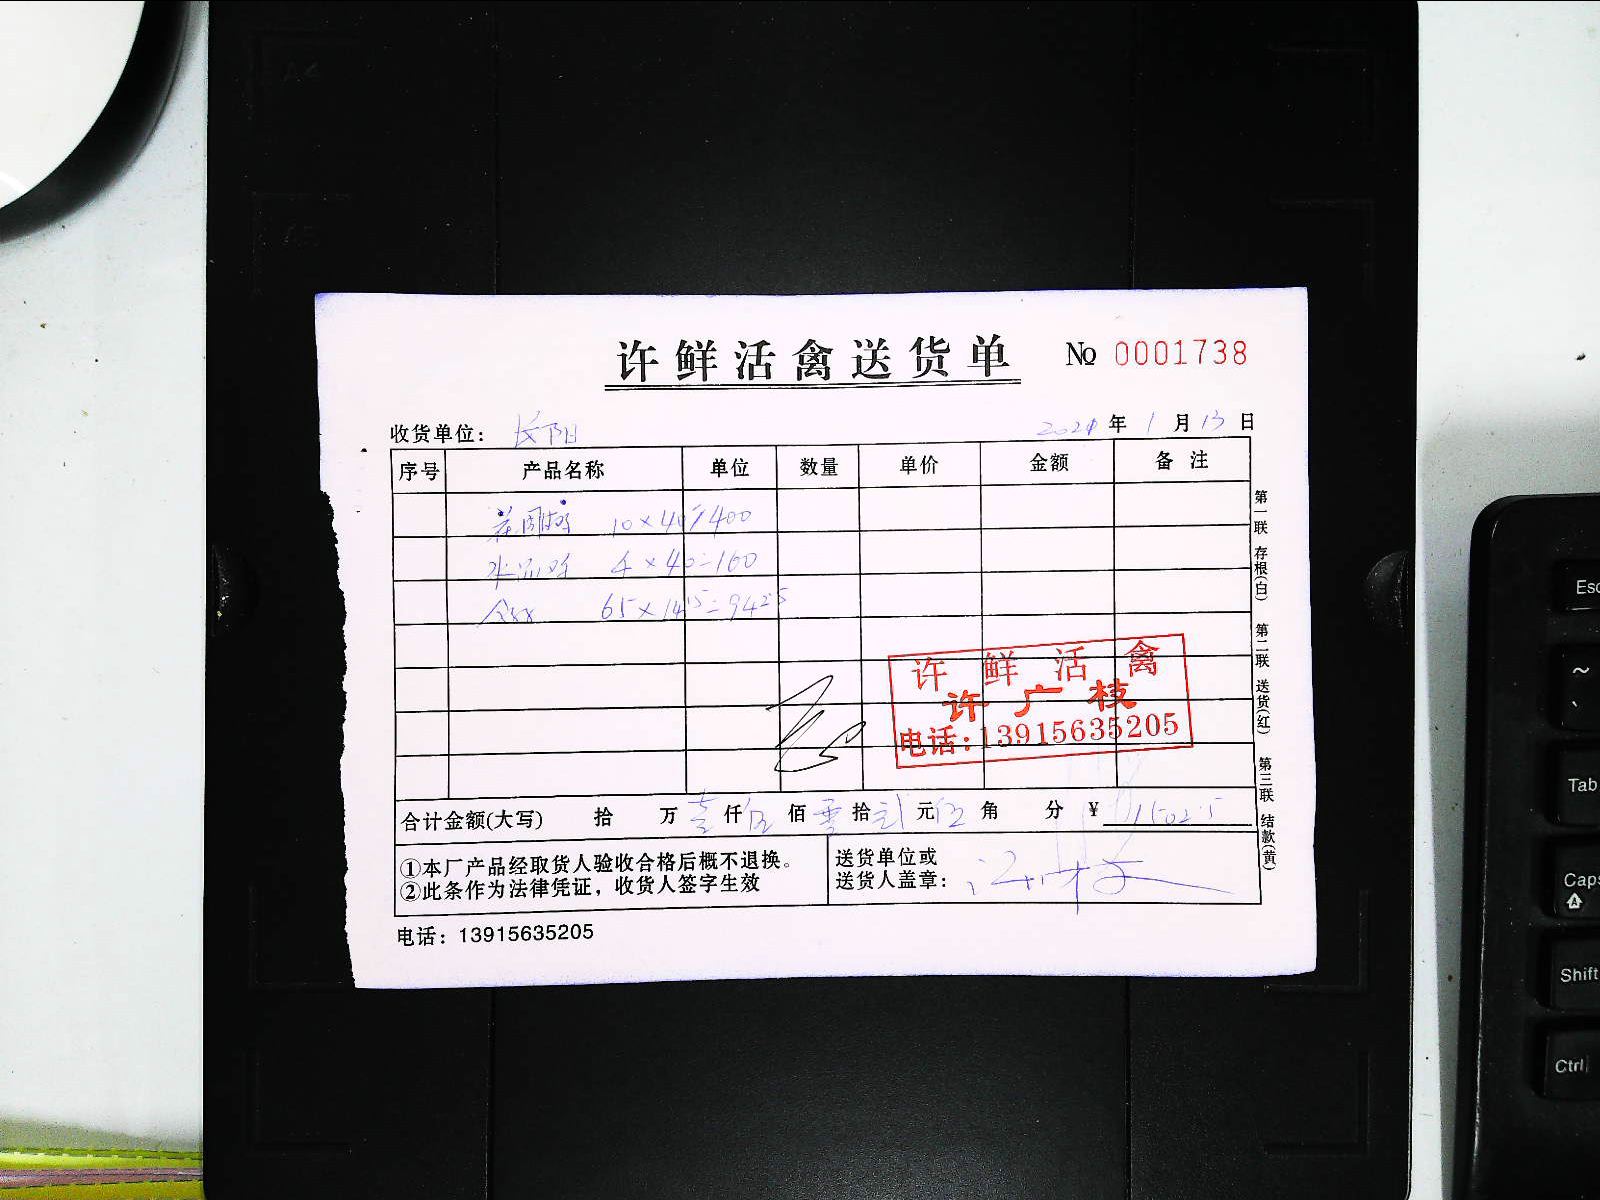 许鲜活禽送货单 No 0001738
收货单位： 长阳 2021 年 1 月 13 日
序号 产品名称 单位 数量 单价 金额 备注
10×40=400
4×40=160
65×14.5=942.5
许鲜活禽
许广枝
电话:13915635205
合计金额(大写) 拾 万 壹 仟 伍 佰 零 拾 贰 元 伍 角 分 ¥ 1502.5
①本厂产品经取货人验收合格后概不退换。
②此条作为法律凭证，收货人签字生效
送货单位或
送货人盖章：
电话：13915635205
第一联 存根(白) 第二联 送货(红) 第三联 结款(黄)
Esc
~
、
Tab
Caps
Shift
Ctrl